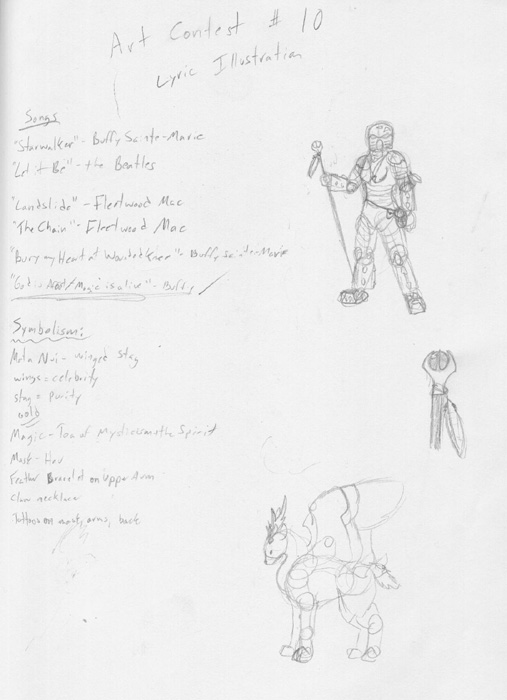 Art Contest # 10
Lyric Illustration
Songs
"Starwalker" - Buffy Sainte-Marie
"Let it Be" - the Beatles
"Landslide" - Fleetwood Mac
"The Chain" - Fleetwood Mac
"Bury my Heart at Wounded Knee" - Buffy Sainte-Marie
"God is Magic is alive" - Buffy
Symbolism:
Mata Nui - winged stag
wings = celebrity
stag = purity
gold
Magic - Toa of Mysticism the Spirit
Mask - Hau
Feather Bracelet on upper Arm
Claw necklace
Tattoos on mask, arms, back